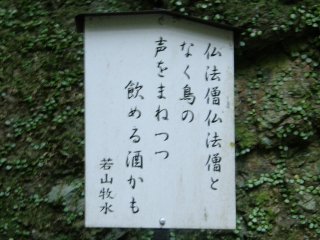 仏法僧仏法僧と
なく鳥の
声をまねつつ
飲める酒かも
若山牧水